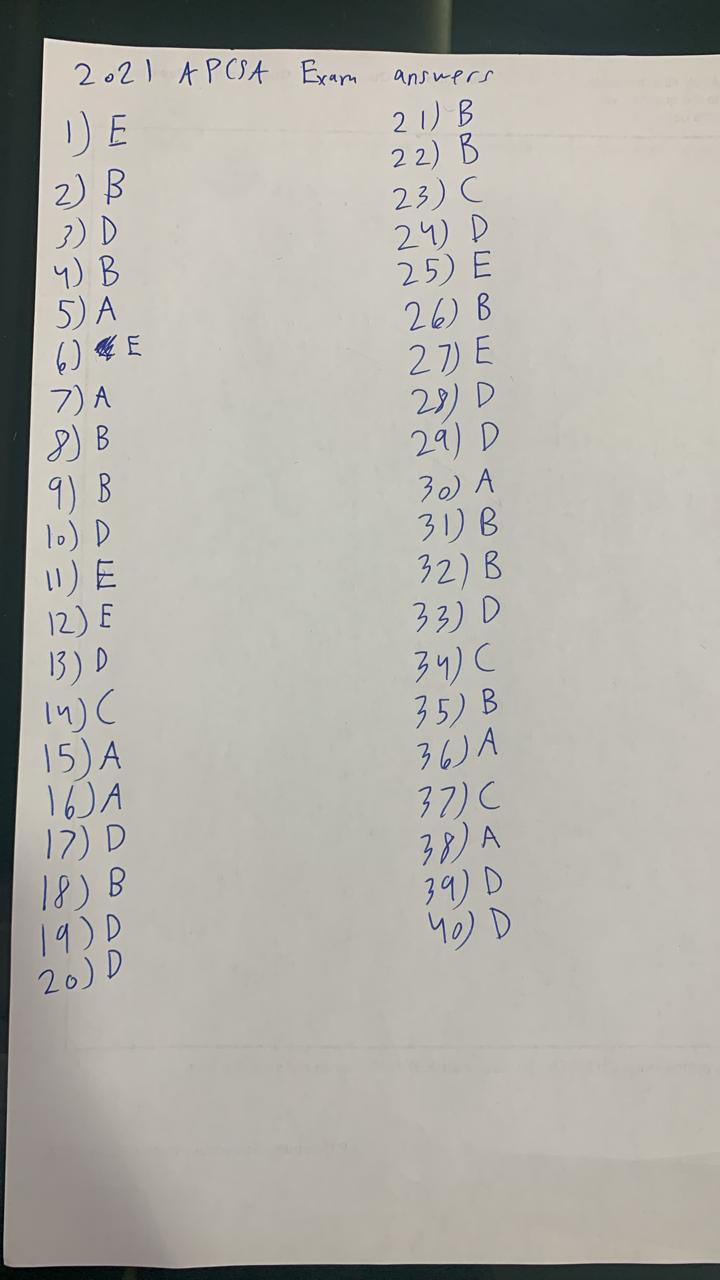 2021 APCSA Exam answers
1) E
2) B
3) D
4) B
5) A
6) E
7) A
8) B
9) B
10) D
11) E
12) E
13) D
14) C
15) A
16) A
17) D
18) B
19) D
20) D
21) B
22) B
23) C
24) D
25) E
26) B
27) E
28) D
29) D
30) A
31) B
32) B
33) D
34) C
35) B
36) A
37) C
38) A
39) D
40) D